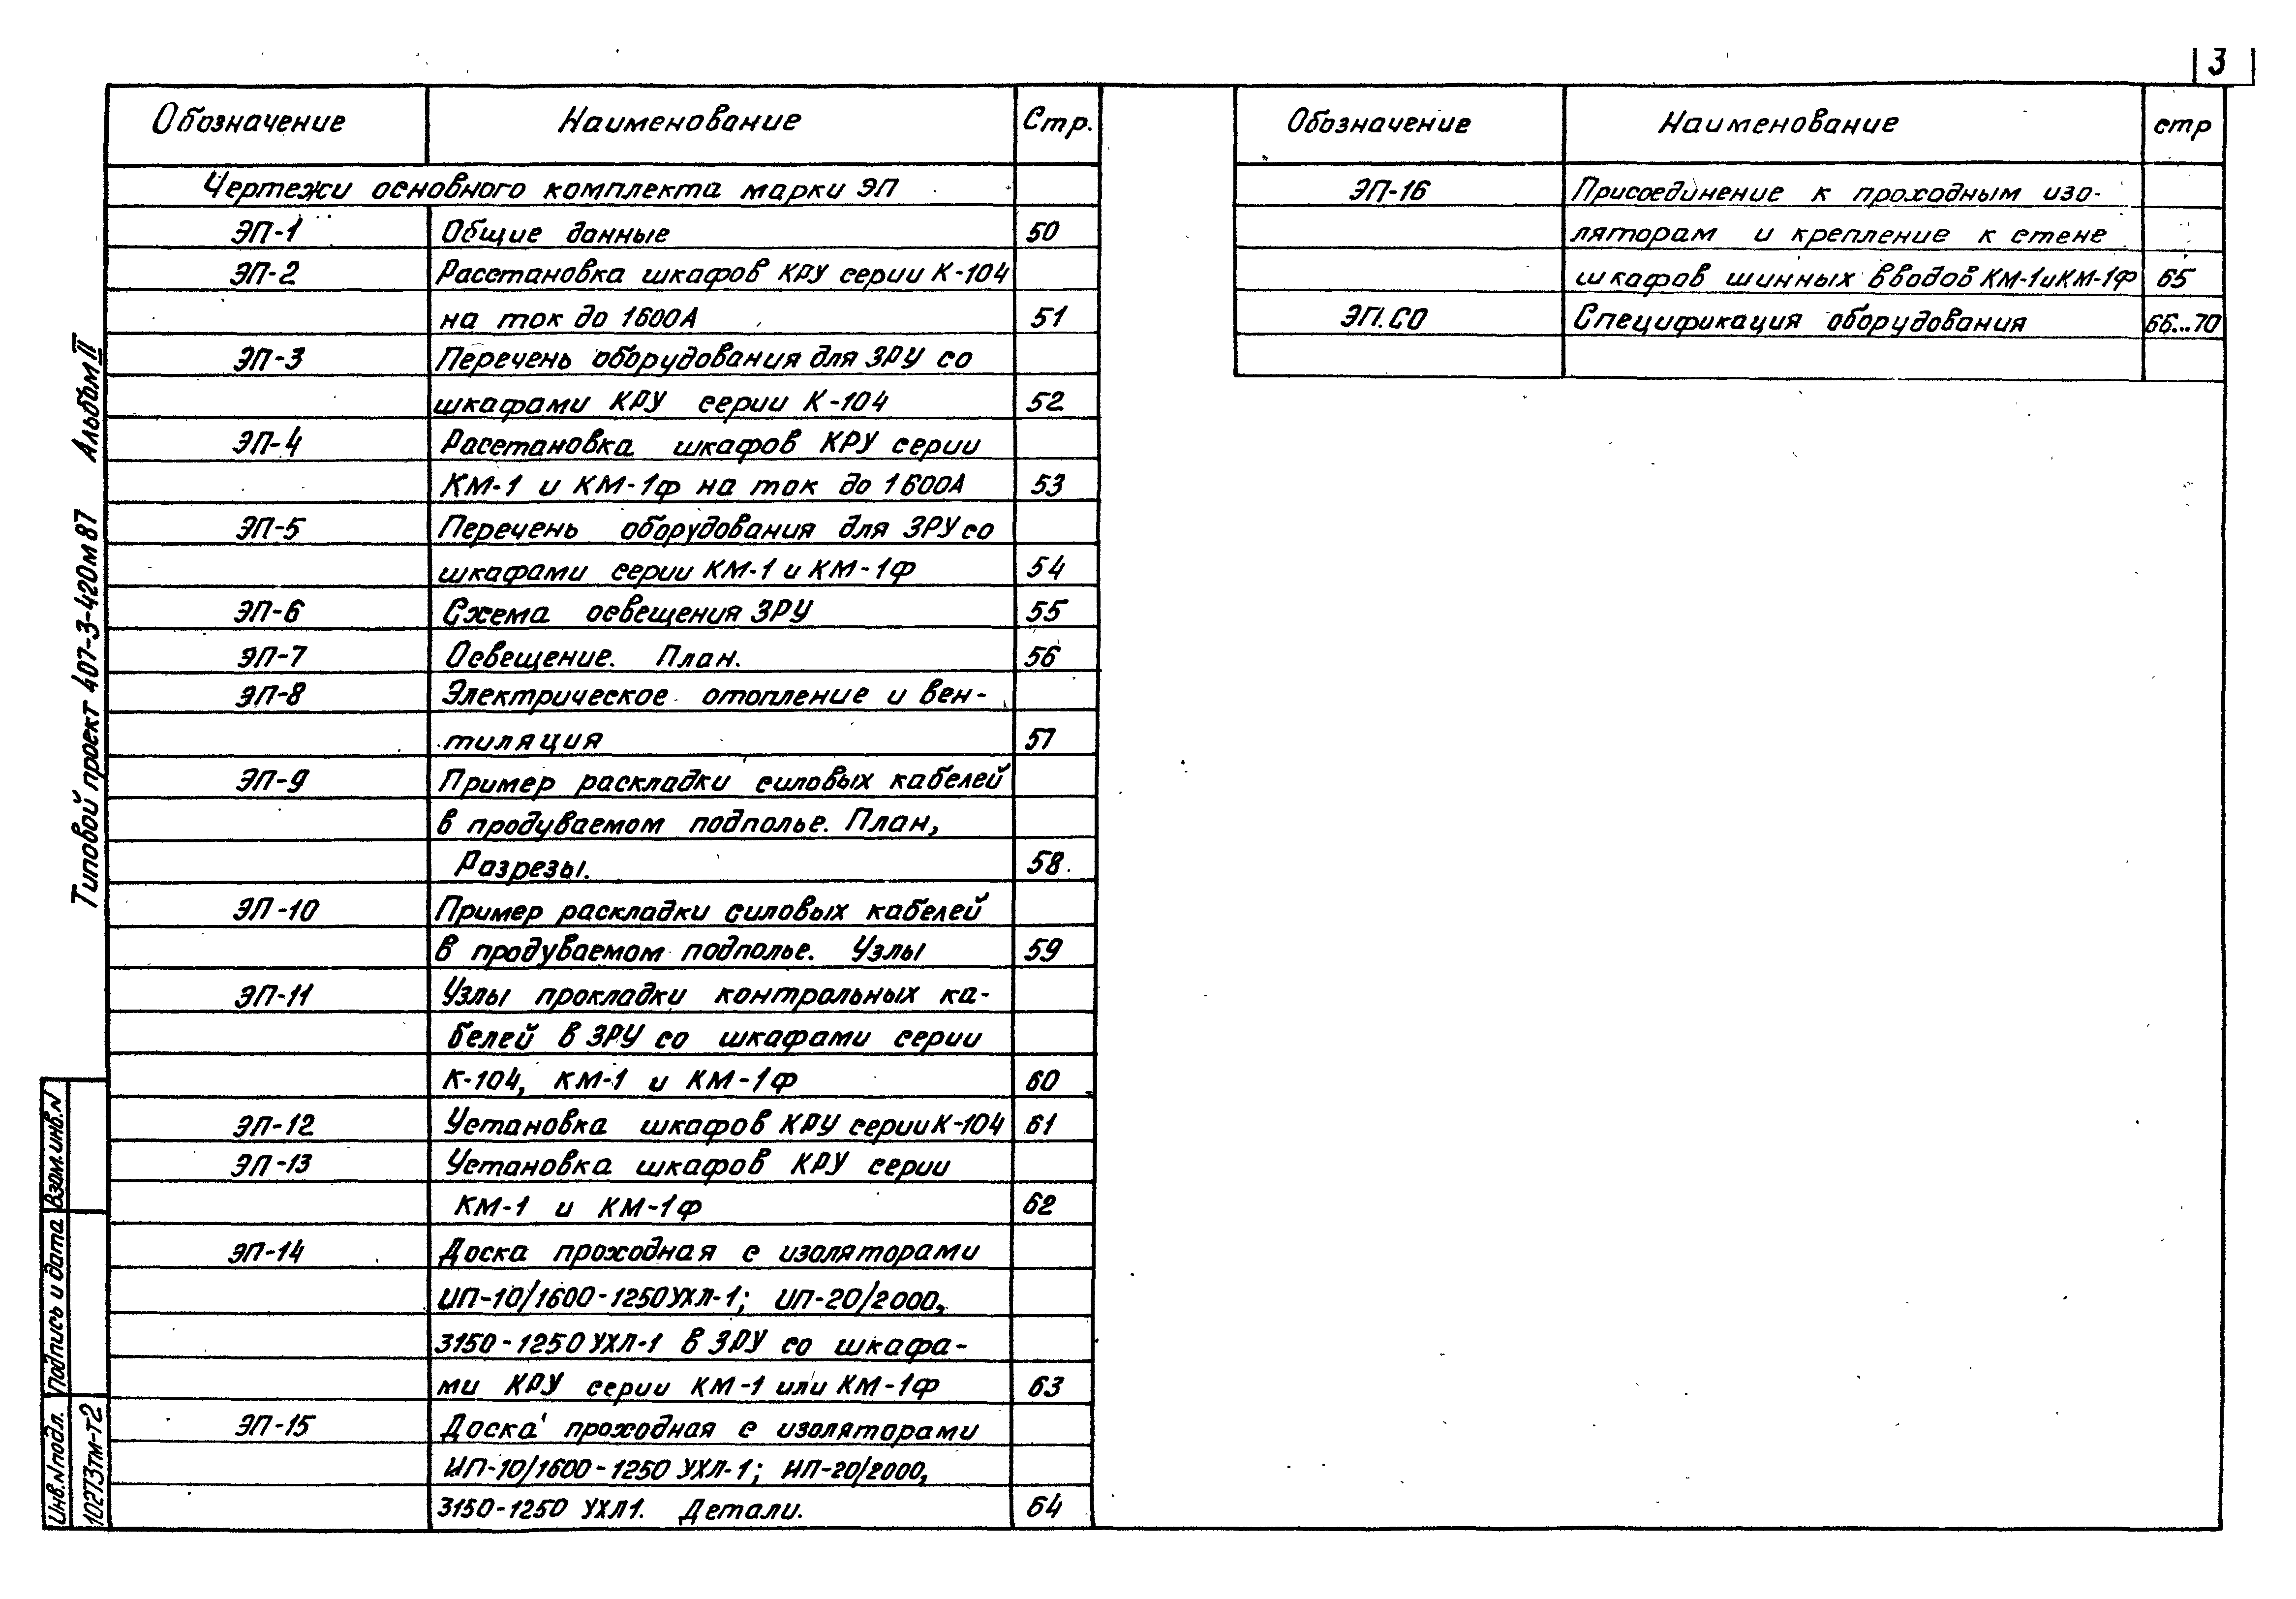 3
Обозначение Наименование Стр.
Чертежи основного комплекта марки ЭП
ЭП-1 Общие данные 50
ЭП-2 Расстановка шкафов КРУ серии К-104
на ток до 1600А 51
ЭП-3 Перечень оборудования для ЗРУ со
шкафами КРУ серии К-104 52
ЭП-4 Расстановка шкафов КРУ серии
КМ-1 и КМ-1ф на ток до 1600А 53
ЭП-5 Перечень оборудования для ЗРУ со
шкафами серии КМ-1 и КМ-1ф 54
ЭП-6 Схема освещения ЗРУ 55
ЭП-7 Освещение. План. 56
ЭП-8 Электрическое отопление и вен-
тиляция 57
ЭП-9 Пример раскладки силовых кабелей
в продуваемом подполье. План,
Разрезы. 58
ЭП-10 Пример раскладки силовых кабелей
в продуваемом подполье. Узлы 59
ЭП-11 Узлы прокладки контрольных ка-
белей в ЗРУ со шкафами серии
К-104, КМ-1 и КМ-1ф 60
ЭП-12 Установка шкафов КРУ серии К-104 61
ЭП-13 Установка шкафов КРУ серии
КМ-1 и КМ-1ф 62
ЭП-14 Доска проходная с изоляторами
ИП-10/1600-1250УХЛ-1; ИП-20/2000,
3150-1250 УХЛ-1 в ЗРУ со шкафа-
ми КРУ серии КМ-1 или КМ-1ф 63
ЭП-15 Доска проходная с изоляторами
ИП-10/1600-1250 УХЛ-1; ИП-20/2000,
3150-1250 УХЛ1. Детали. 64
Обозначение Наименование стр
ЭП-16 Присоединение к проходным изо-
ляторам и крепление к стене
шкафов шинных вводов КМ-1 и КМ-1ф 65
ЭП.СО Спецификация оборудования 66...70
Типовой проект 407-3-420м87 Альбом II
Взам.инв.N
Подпись и дата
Инв.N подл.
10273тм-т2